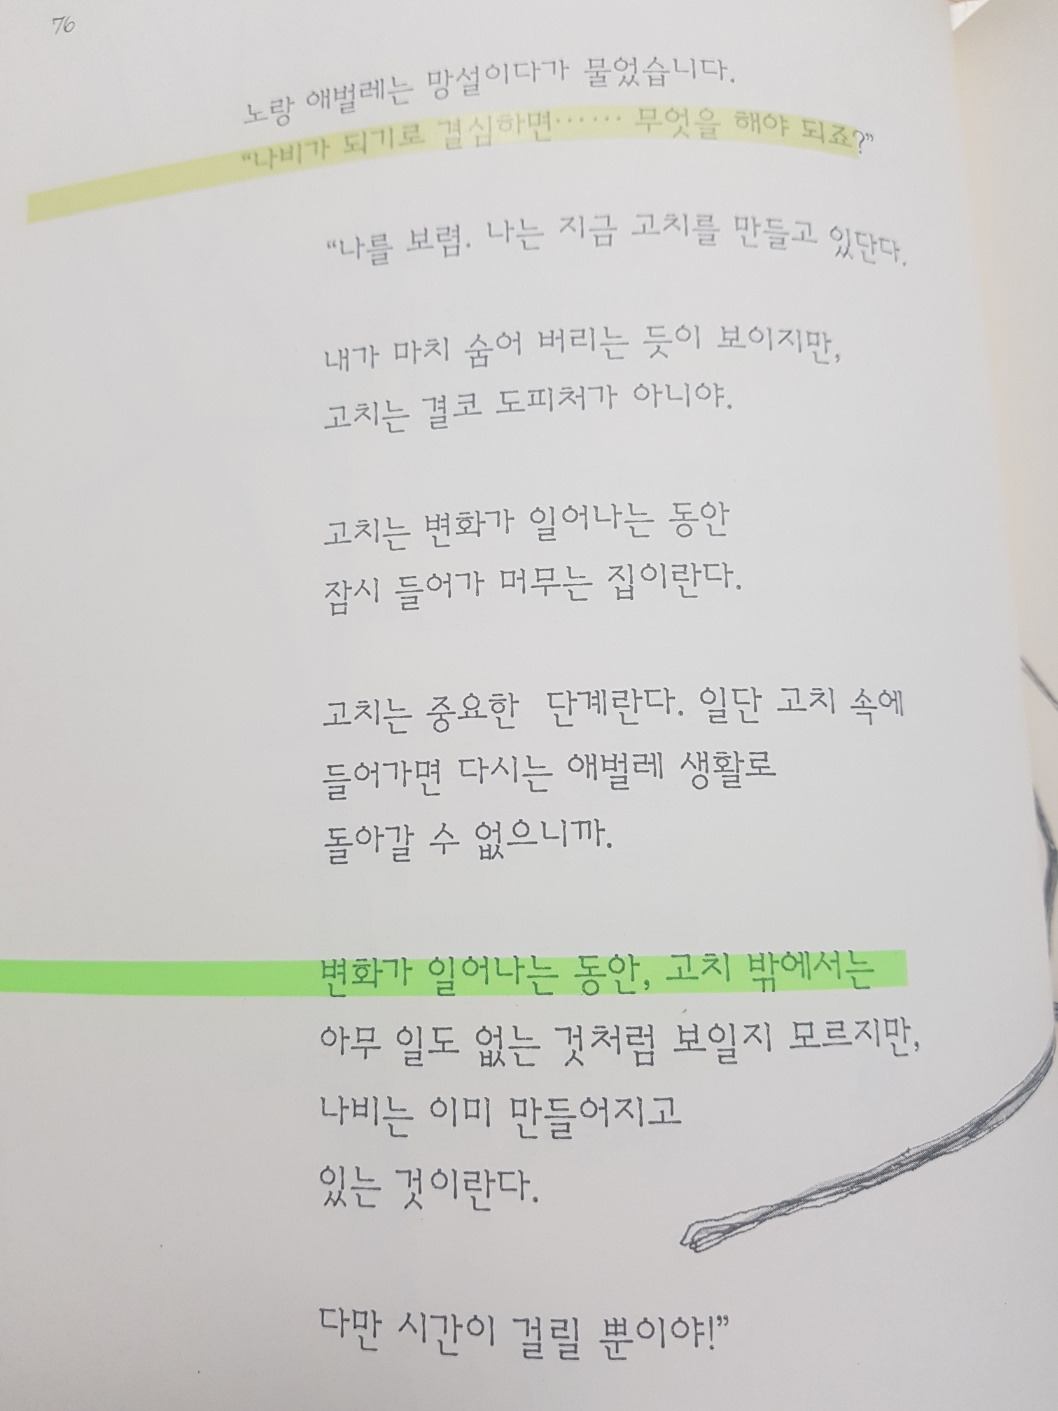 76
노랑 애벌레는 망설이다가 물었습니다.
“나비가 되기로 결심하면…… 무엇을 해야 되죠?”
“나를 보렴. 나는 지금 고치를 만들고 있단다.
내가 마치 숨어 버리는 듯이 보이지만,
고치는 결코 도피처가 아니야.
고치는 변화가 일어나는 동안
잠시 들어가 머무는 집이란다.
고치는 중요한 단계란다. 일단 고치 속에
들어가면 다시는 애벌레 생활로
돌아갈 수 없으니까.
변화가 일어나는 동안, 고치 밖에서는
아무 일도 없는 것처럼 보일지 모르지만,
나비는 이미 만들어지고
있는 것이란다.
다만 시간이 걸릴 뿐이야!”